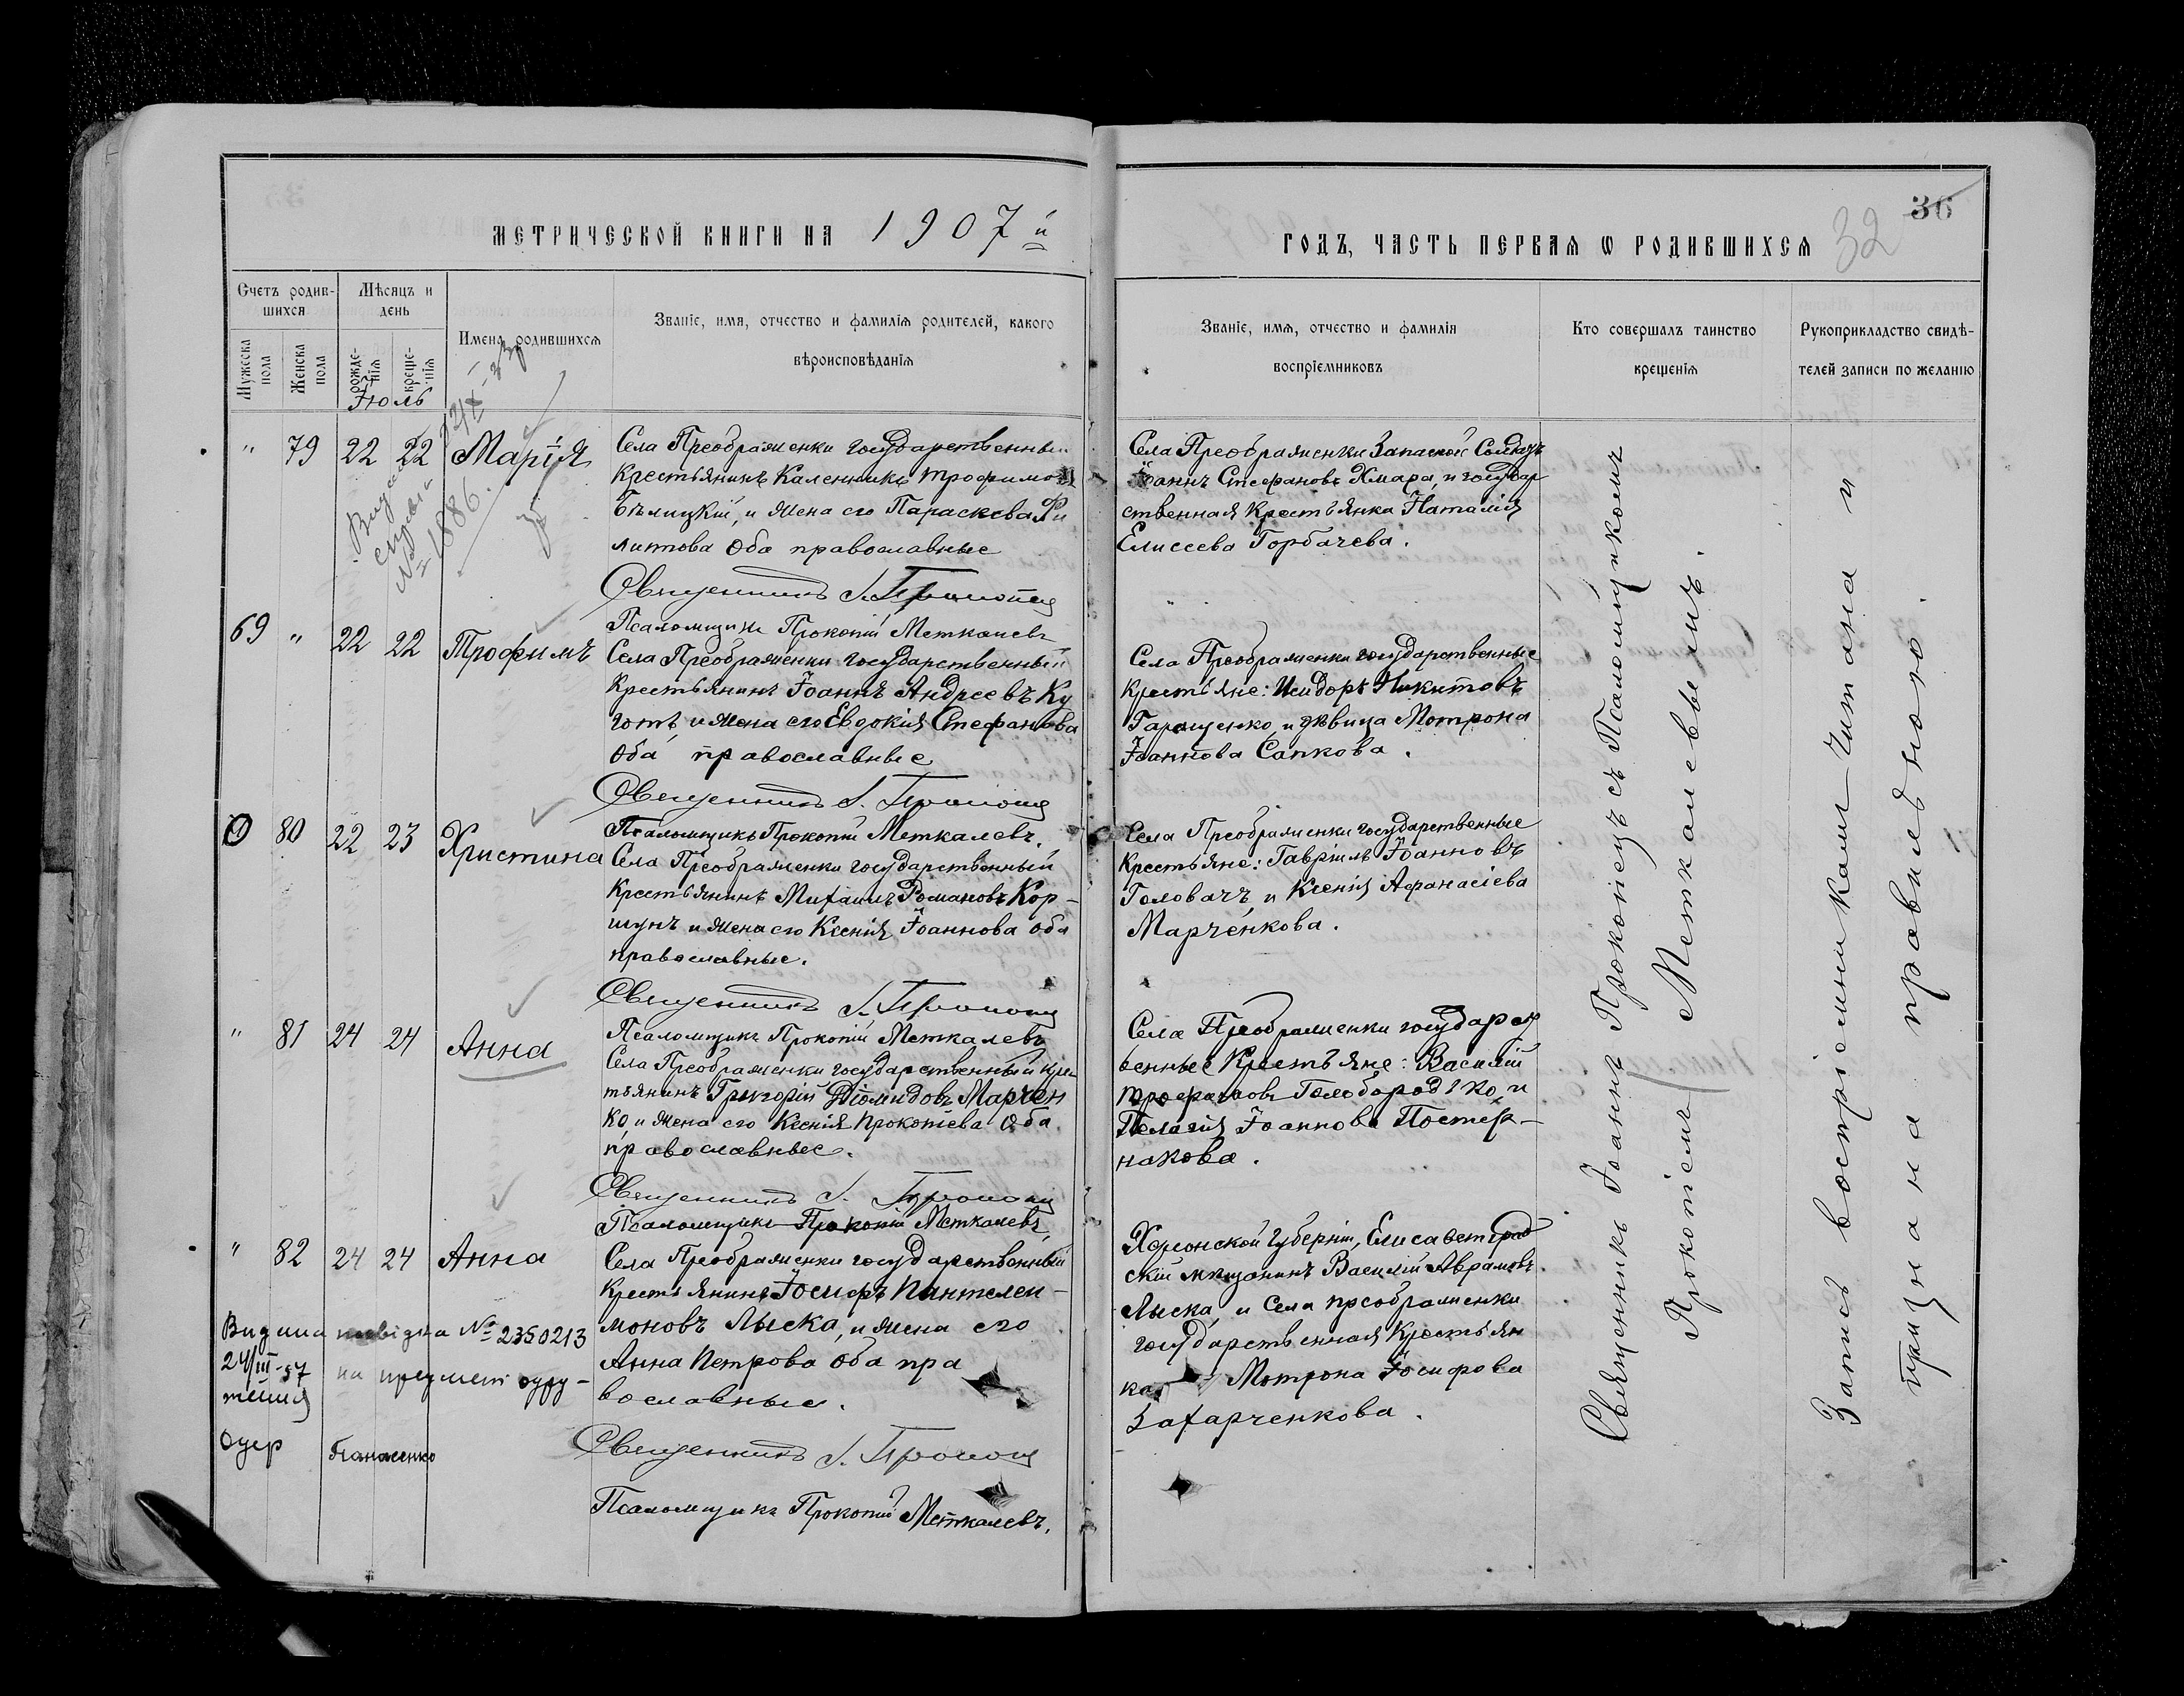 36
32
МЕТРИЧЕСКОЙ КНИГИ НА 1907й
ГОДЪ, ЧАСТЬ ПЕРВАЯ Ѡ РОДИВШИХСЯ
Счетъ родив-
шихся
Мѣсяцъ и
день
Мужеска
пола
Женска
пола
рожде-
нія
креще-
нія
Имена родившихся
Званіе, имя, отчество и фамилія родителей, какого
вѣроисповѣданія
Званіе, имя, отчество и фамилія
воспріемниковъ
Кто совершалъ таинство
крещенія
Рукоприкладство свидѣ-
телей записи по желанію
Іюль
" 79 22 22 Марія
№ 1886.
Села Преображенки государственный
крестьянинъ Каленникъ Трофимовъ
Бѣлицкій, и жена его Параскева Фи
литова оба православные
Священникъ І. Прокопецъ
Псаломщикъ Прокопій Меткалевъ
Села Преображенки Запасной Солдатъ
Іоаннъ Стефановъ Хмара, и государ
ственная крестьянка Наталія
Елисеева Горбачева.
69 " 22 22 Трофимъ
Села Преображенки государственный
крестьянинъ Іоаннъ Андреевъ Ку
готъ, и жена его Евдокія Стефанова
оба православные
Священникъ І. Прокопецъ
Псаломщикъ Прокопій Меткалевъ.
Села Преображенки государственные
крестьяне: Исидоръ Никитовъ
Гаращенко, и дѣвица Мотрона
Іоаннова Сапкова.
80 22 23 Христина
Села Преображенки государственный
крестьянинъ Михаилъ Романовъ Кор-
шунъ и жена его Ксенія Іоаннова оба
православные.
Священникъ І. Прокопецъ
Псаломщикъ Прокопій Меткалевъ
Села Преображенки государственные
крестьяне: Гавріилъ Іоанновъ
Головачъ, и Ксенія Афанасіева
Марченкова.
" 81 24 24 Анна
Села Преображенки государственный крес
тьянинъ Григорій Діомидовъ Марчен
ко, и жена его Ксенія Прокопіева оба
православные.
Священникъ І. Прокопецъ
Псаломщикъ Прокопій Меткалевъ,
Села Преображенки государст
венные Крестьяне: Василій
Трофимовъ Голобородько, и
Пелагія Іоаннова Постер-
накова.
" 82 24 24 Анна
Села Преображенки государственный
крестьянинъ Іосифъ Пантелеи-
моновъ Лыска, и жена его
Анна Петрова оба пра
вославные.
Священникъ І. Прокопецъ
Псаломщикъ Прокопій Меткалевъ.
Херсонской губерніи, Елисаветград
скій мѣщанинъ Василій Аврамовъ
Лыска, и Села преображенки
государственная Крестьян
ка Мотрона Іосифова
Захарченкова.
Видана довідка № 2350213
24/III-37 на предмет одру-
ження
Панасенко
Священникъ Іоаннъ Прокопецъ съ Псаломщикомъ
Прокопіемъ Меткалевымъ.
Запись воспріемниками читана и
признана правильною.